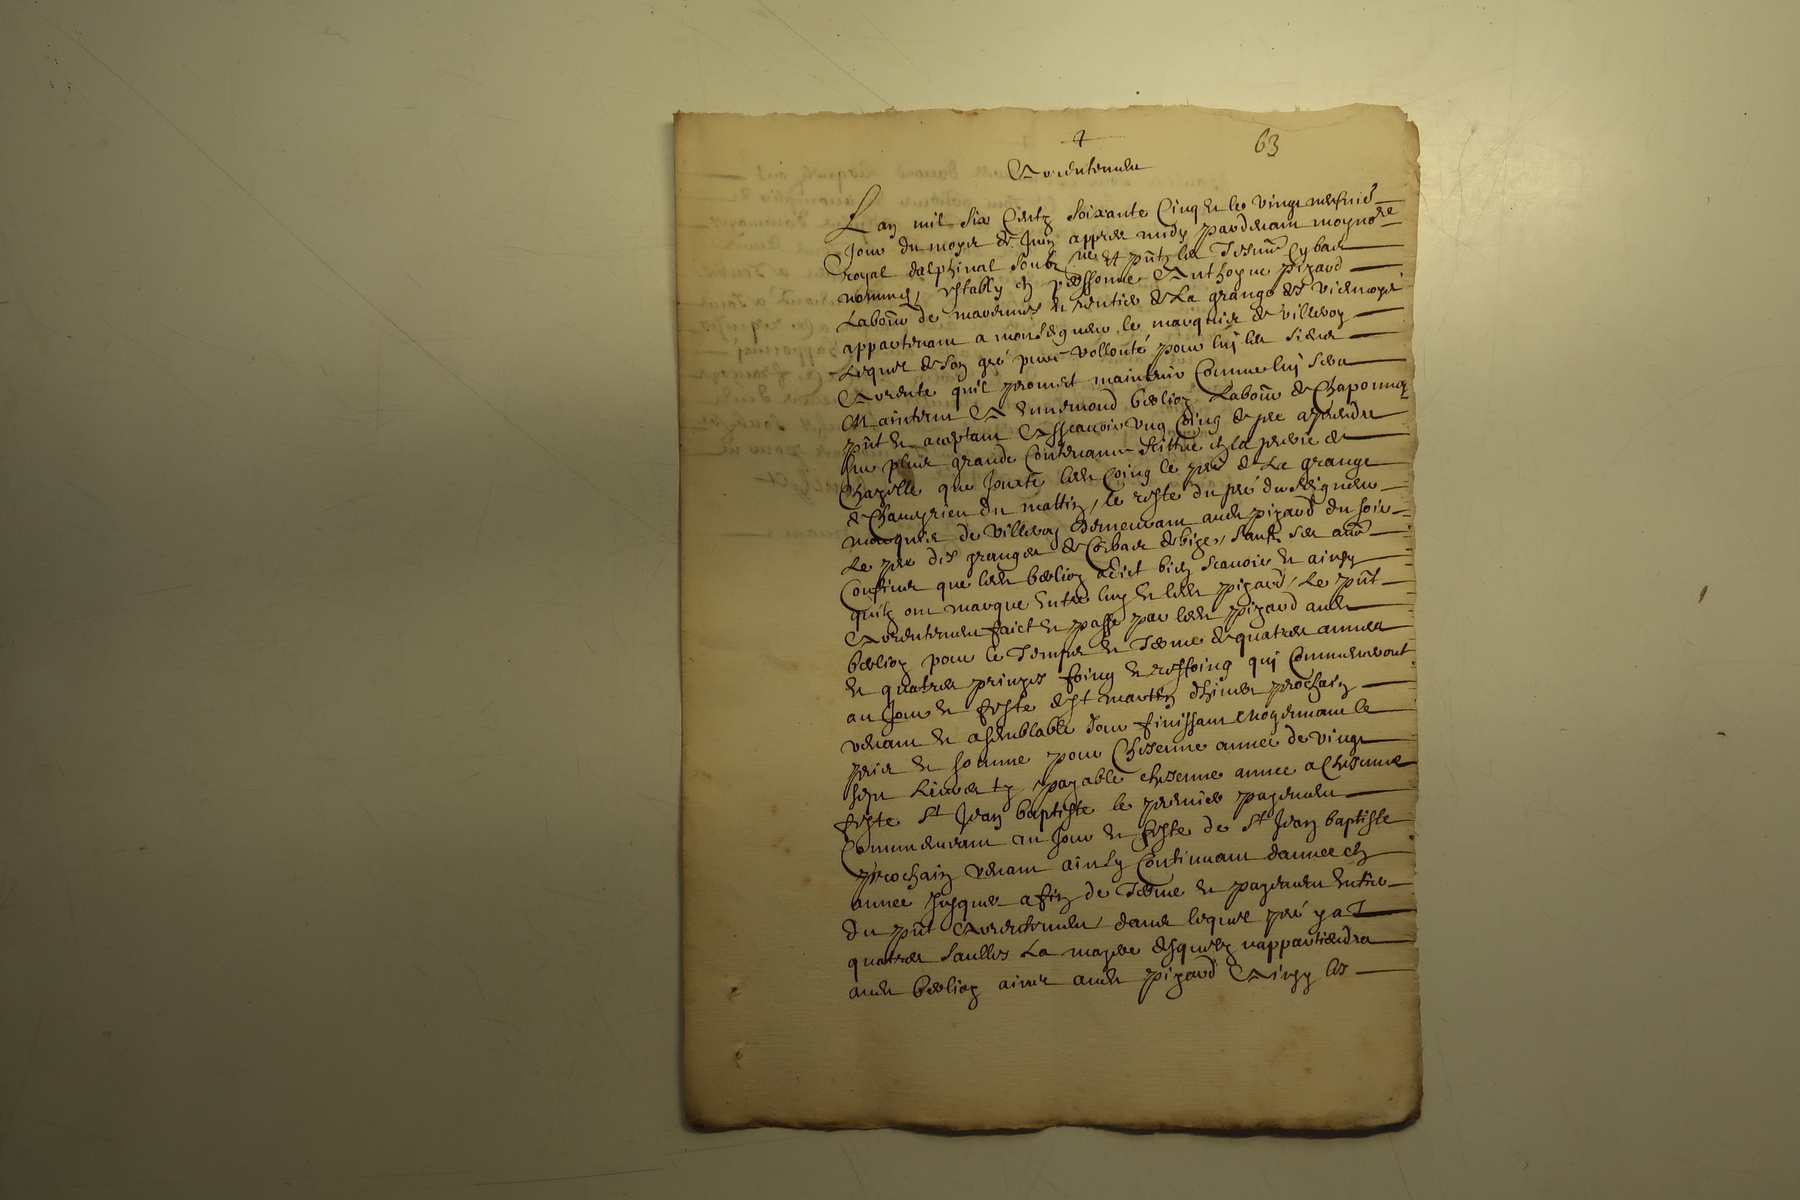 63
Arrentemen
Lan mil six Centz soixante Cinq et le vingt neufvie
Jour du moys de Juin appres midy pardevant moy no.re
royal dalphinal soubz.ne et pñtz les Tesm cy bas
nommes, estably en personne Anthoyne pizard
Labour de marennes et rentier de La grange de
appartenant a monseigneur le marquis de villeroy
Lequel de son gré pure vollonté pour luy les siens
Arrente quil promet maintenir Comme luy sera
Maintenu A ennemond berlioz Labour de Chaponnay
pñt et aceptant Asscavoir ung Coing de pre aprendre
sur plus grande Contenance scittue en la prerie de
Chazelle que Jouxte led Coing le pré de La grange
de du mattin, le reste du pré du seigneur
marquis de villeroy demeurant aud pizard du soir
Le pre des granges de de bize, sauf ses aues
Confins que led berlioz a dict bien scavoir et ainsy
quilz ont marque Entre luy et led pizard, Le pñt
Arrentemen faict et passe par led pizard aud
berlioz pour le Temps et Terme de quatre annees
et quatres prinzes foing et reffoing qui Commenceront
au Jour et feste de st martin dhiver prochain
venant et a semblable Jour finissant moyennant le
prix et somme pour Chesenne annee de vingt
sept Livres tz payable chesenne annee a Chesenne
feste st Jean baptiste le premier payemen
Commencant au Jour et feste de st Jean baptiste
prochain venant ainsy Continuant dannee en
annee Jusques a fin de Terme et payement Entier
du pñt Arrentemen, dans lequel pré y a
quatres saulles La desquelz nappartiendra
aud berlioz ains aud pizard Ainsy les